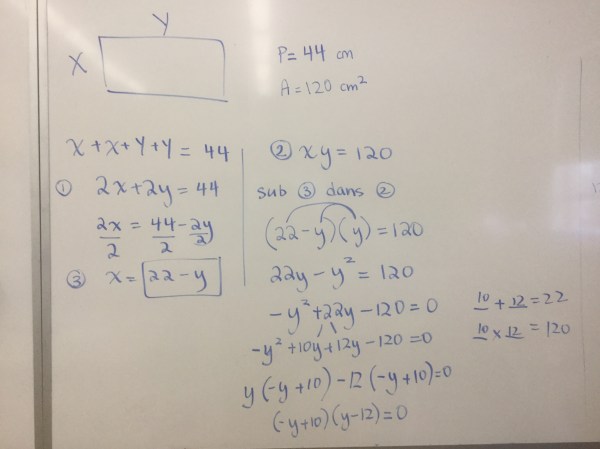 Y
X
P= 44 cm
A = 120 cm²
x + x + y + y = 44
① 2x + 2y = 44
2x/2 = 44/2 - 2y/2
③ x = 22 - y
② xy = 120
sub ③ dans ②
(22 - y)(y) = 120
22y - y² = 120
-y² + 22y - 120 = 0
-y² + 10y + 12y - 120 = 0
y(-y + 10) - 12(-y + 10) = 0
(-y + 10)(y - 12) = 0
10 + 12 = 22
10 x 12 = 120